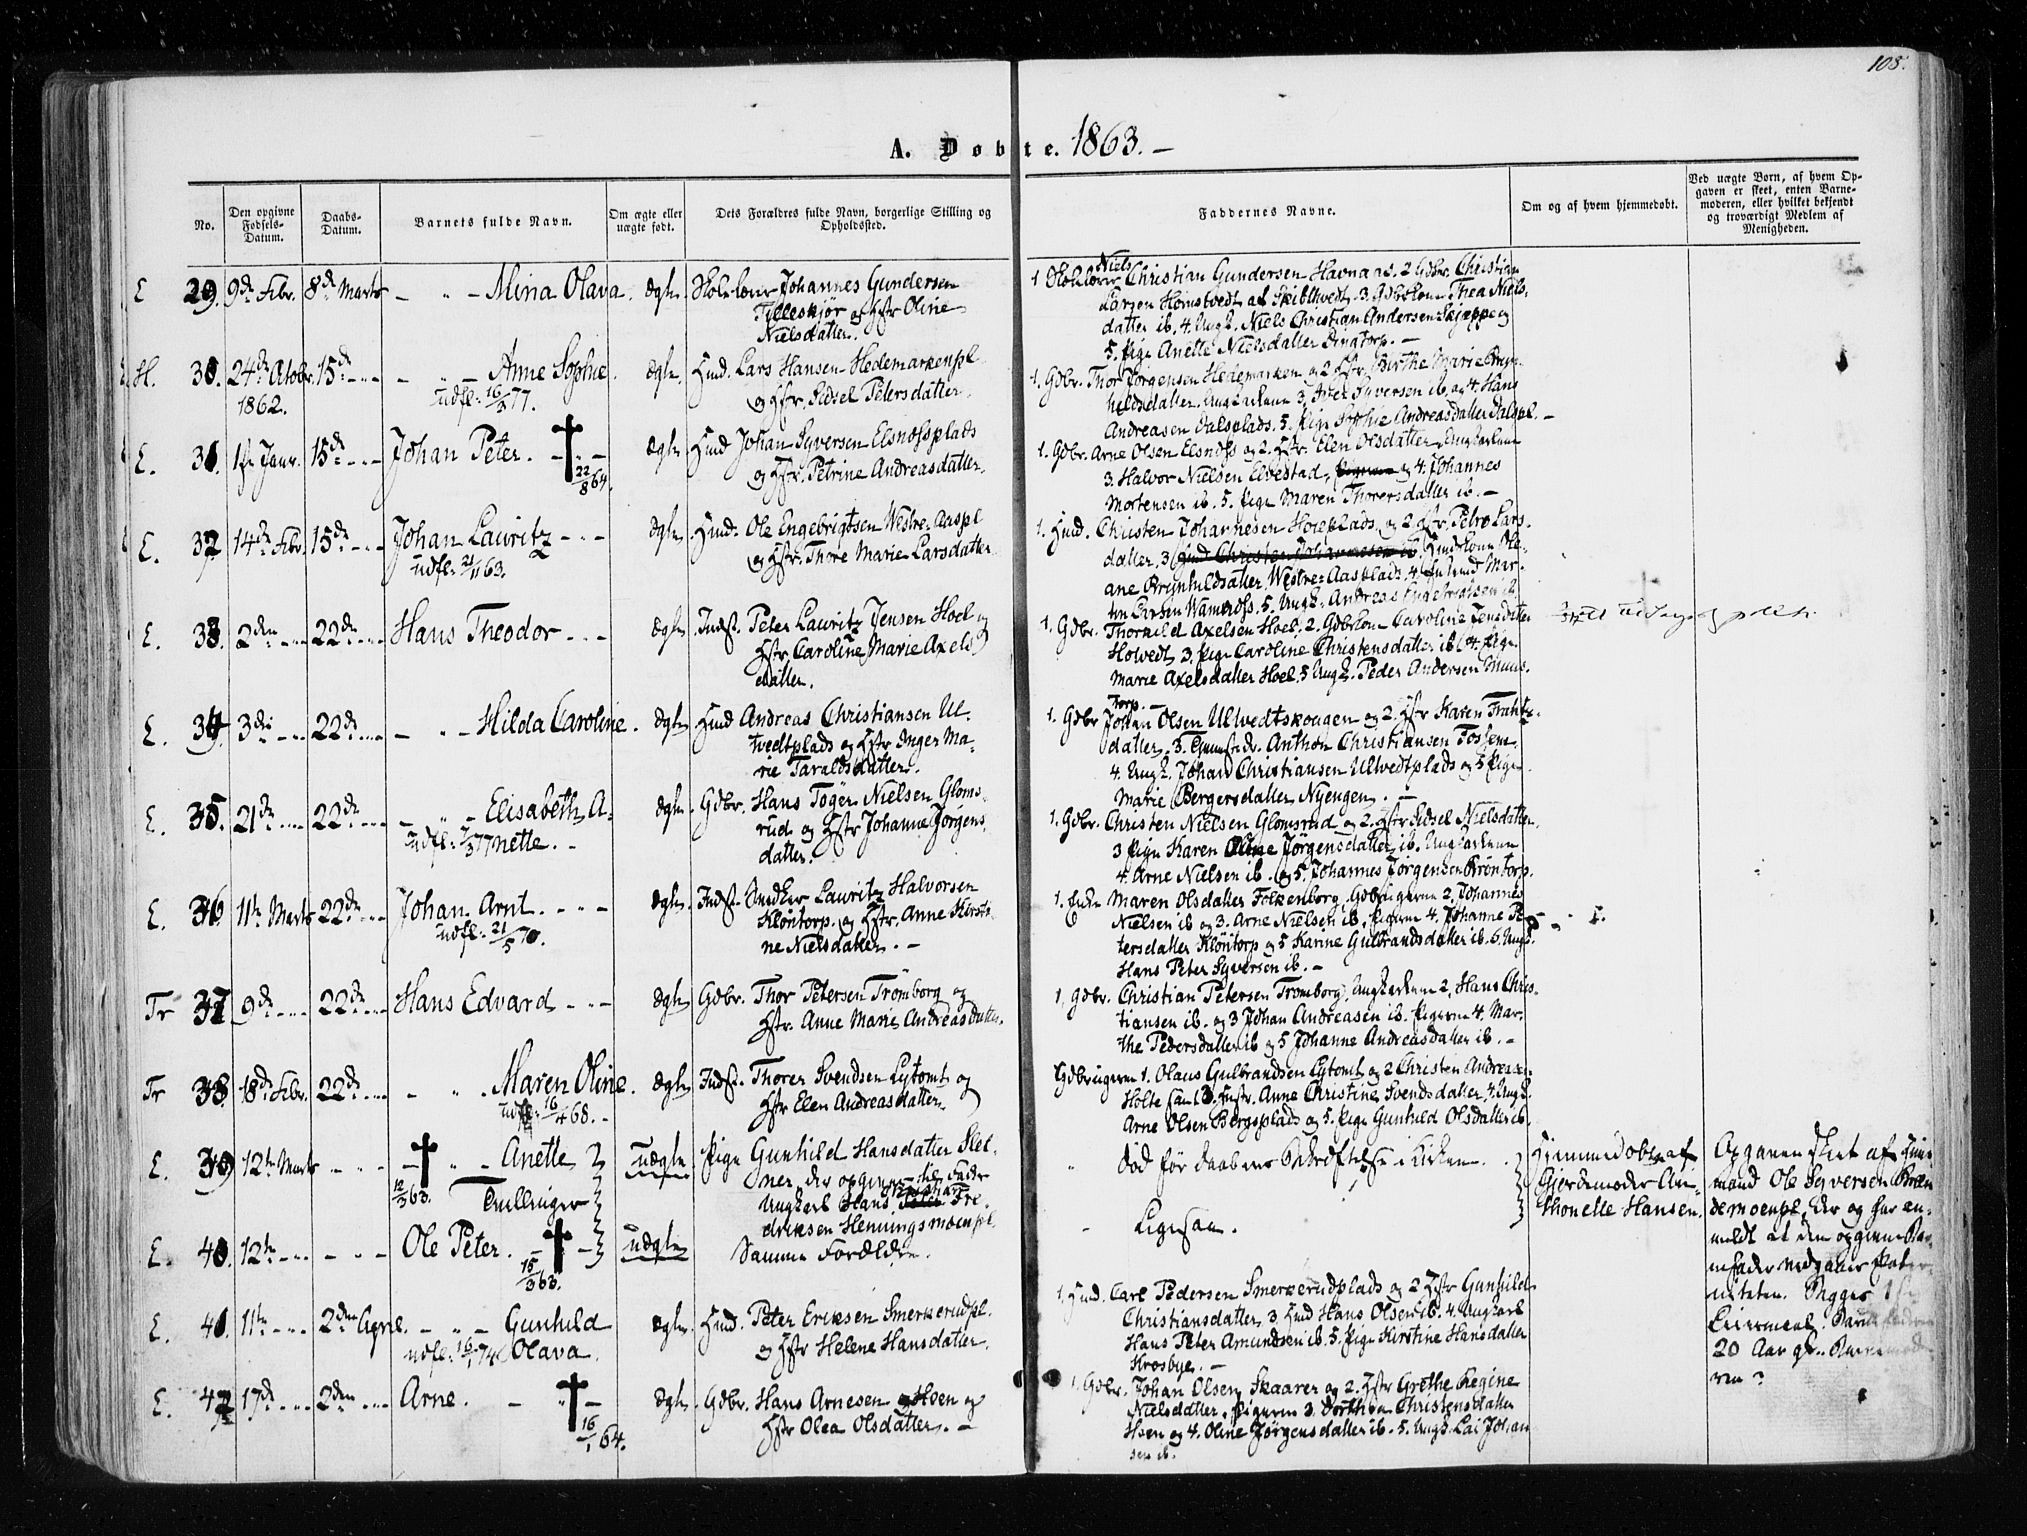 108.
A. Døbte. 1863. —
No.
Den opgivne Fødsels-Datum.
Daabs-Datum.
Barnets fulde Navn.
Om ægte eller uægte født.
Dets Forældres fulde Navn, borgerlige Stilling og Opholdssted.
Faddernes Navne.
Om og af hvem hjemmedøbt.
Ved uægte Børn, af hvem Opgaven er skeet, enten Barnemoderen, eller hvilket bekjendt og troværdigt Medlem af Menigheden.
E 29. 9de Febr. 8de Marts — " — Mina Olava. Ægte Skolelærer Johannes Gundersen
Tilleskjør og Hstr Oline
Nielsdatter.
1 Skolelærer Niels Christian Gundersen Havnaas. 2 Gdbr. Christian
Larsen Homstvedt af Skibthvedt. 3. Gdbrkone Thea Niels-
datter ib. 4. Ungk. Niels Christian Andersen Skjæppe og
5. Pige Anette Nielsdatter Dingtorp. —
H. 30. 24de Octobr. 15de — Anne Sophie. Ægte. Hmd. Lars Hansen Hedemarkenpl
1862. udfl: 16/3 77. og Hstr. Sidsel Petersdatter.
1. Gdbr. Thor Jørgensen Hedemarken og 2 Hstr. Birthe Marie Bryn-
hildsdatter. Ungkarlene 3. Peter Syversen ib. og 4. Hans
Andreasen Dalsplads. 5. Pige Sophie Andreasdatter Dalspl. —
E. 31. 1ste Janr. 15de Johan Peter. — Ægte Hmd Johan Syversen Elsnessplads
22/8 64. og Hstr. Petrine Andreasdatter.
1. Gdbr. Arne Olsen Elsness og 2. Hstr. Elen Olsdatter. Ungkarlene
3. Halvor Nielsen Elvestad, og 4. Johannes
Mortensen ib. 5. Pige Maren Thorersdatter ib. —
E. 32 14de Febr. 15de Johan Lauritz — Ægte. Hmd. Ole Engebrigtsen Westre-Aaspl
udfl: 21/11 63. og Hstr. Thore Marie Larsdatter
1. Hmd. Christen Johannesen Hoelplads og 2 Hstr. Petro Lars-
datter. 3 Hmd Christen Johannesen ib Hmdskone Ole-
ane Brynhildsdatter Westre-Aasplads. 4. Enkemd Mar-
tin Larsen Wamness. 5. Ungk. Andreas Engebretsen ib.
E. 33. 2den — 22de Hans Theodor — Ægte Indst. Peter Lauritz Jensen Hoel og
Hstr Caroline Marie Axels-
datter.
1. Gdbr. Thorkild Axelsen Hoel. 2. Gdbrkone Caroline Jensdatter
Holvedt. 3. Pige Caroline Christensdatter ib. 4. Pige
Marie Axelsdatter Hoel. 5 Ungk. Peder Andersen Muus-
torp. —
E. 34. 3die — 22de — " — Hilda Caroline. Ægte Hmd Andreas Christiansen Ul-
tvedtplads og Hstr Inger Ma-
rie Taraldsdatter.
1. Gdbr Johan Olsen Ultvedtskougen og 2. Hstr Karen Frants-
datter. 3. Anthon Christiansen Fossem
4. Ungk. Johan Christiansen Ultvedtplads og 5 Pige
Marie Bergersdatter Nyengen. —
E. 35. 21de — 22de — " — Elisabeth A- Ægte. Gdbr. Hans Toger Nielsen Gloms-
udfl: 7/3 77 nette. — rud og Hstr Johanne Jørgens-
datter.
1. Gdbr. Christen Nielsen Glomsrud og 2. Hstr Sidsel Nielsdatter.
3 Pige Karen Oline Jørgensdatter ib. Ungkarlene
4. Arne Nielsen ib. og 5. Johannes Jørgensen Krontorp.
E. 36. 11te Marts 22de Johan Arnt. — Ægte. Indst. Snedker Lauritz Halvorsen
udfl: 21/5 70. Klöntorp. og Hstr. Anne Kirsti-
ne Nielsdatter. —
1. Enke Maren Olsdatter Folkenborg. Gdbrugerne 2. Johannes
Nielsen ib og 3. Arne Nielsen ib. Pigerne 4. Johanne Pe-
tersdatter Klöntorp og 5 Karine Gulbrandsdatter ib. 6. Ungk.
Hans Peter Syversen ib. —
Tr 37 9de — 22de Hans Edvard — Ægte Gdbr. Thor Petersen Trömborg og
Hstr. Anne Marie Andreasdatter.
1. Gdbr. Christian Petersen Tromborg. Ungkarlene 2. Hans Chris-
tiansen ib. og 3 Johan Andreasen ib. Pigerne 4. Mar-
the Pedersdatter ib og 5 Johanne Andreasdatter ib. —
Tr 38. 18de Febr. 22de — " . Maren Oline. Ægte Indst. Thorer Svendsen Lytomt og
udfl: 16/4 68. Hstr Elen Andreasdatter.
Gdbrugerne 1. Olaus Gulbrandsen Lytomt og 2 Christen Andreas-
Holte samt 3. Anne Christine Svendsdatter. 4. Ungk.
Arne Olsen Bergsplads og 5. Pige Gunhild Olsdatter ib.
E. 39 12te Marts — — " — Anette Uægte Pige Gunhild Hansdatter Slet-
12/3 63. Tvillinger ner, der opgiver til Fader
Ungkarl Hans Fre-
driksen Henningsmoenpl.
" Død før Daabens Bekræftelse i Kirken.
Hjemmedøbt af
Gjordemoder An-
thonette Hansen.
Opgaven skeet af Huus-
mand Ole Syversen Bræn-
demoenpl, der og har an-
meldt at den opgivne Bar-
nefader vedgaaer Pater-
niteten. Begges 1ste
Leiermaal. Barnefaderen
20 Aar gl. Barnemode-
ren ?
E. 40. 12te — Ole Peter. — Uægte Samme Forældre.
15/3 63.
— Ligesaa.
E. 41. 11te — 2den April. — " — Gunhild Ægte. Hmd. Peter Eriksen Smerkerudpl.
udfl: 16/1 74 Olava. og Hstr Helene Hansdatter.
1. Hmd. Carl Pedersen Smerkerudplads og 2 Hstr Gunhild
Christiansdatter. 3. Hmd Hans Olsen ib. 4. Ungkarl
Hans Peter Amundsen ib. 5. Pige Kirstine Hansdatter
Krosbye. —
E. 42 17de 2den Arne. — " — Ægte. Gdbr. Hans Arnesen Hoen og
16/1 64. Hstr Olea Olsdatter. —
1. Gdbr. Johan Olsen Skaarer og 2. Hstr Grethe Regine
Nielsdatter. Pigerne 3. Dorthea Christensdatter
Hoen og 4. Oline Jørgensdatter ib. 5. Ungk. Lai Johan
sen ib.